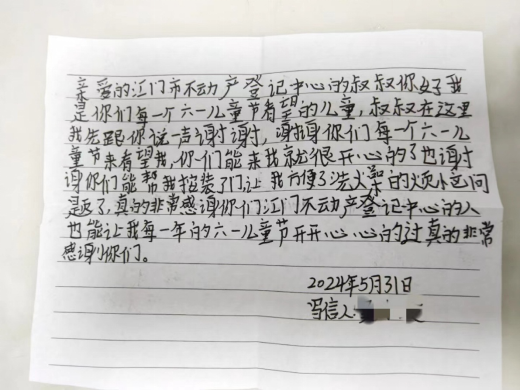 亲爱的江门市不动产登记中心的叔叔你好我
是你们每一个六一儿童节看望的儿童，叔叔在这里
我先跟你说一声谢谢谢，谢谢你们每一个六一儿
童节来看望我，你们能来我就很开心的了也谢谢
谢你们能帮我搭装了门让我方便了洗澡的烦恼问
题了，真的非常感谢你们江门不动产登记中心的人
也能让我每一年的六一儿童节开开心心的过真的非常
感谢你们。
2024年5月31日
写信人